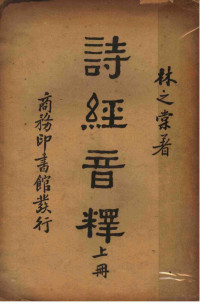 林之棠著
詩經音釋
上冊
商務印書館發行